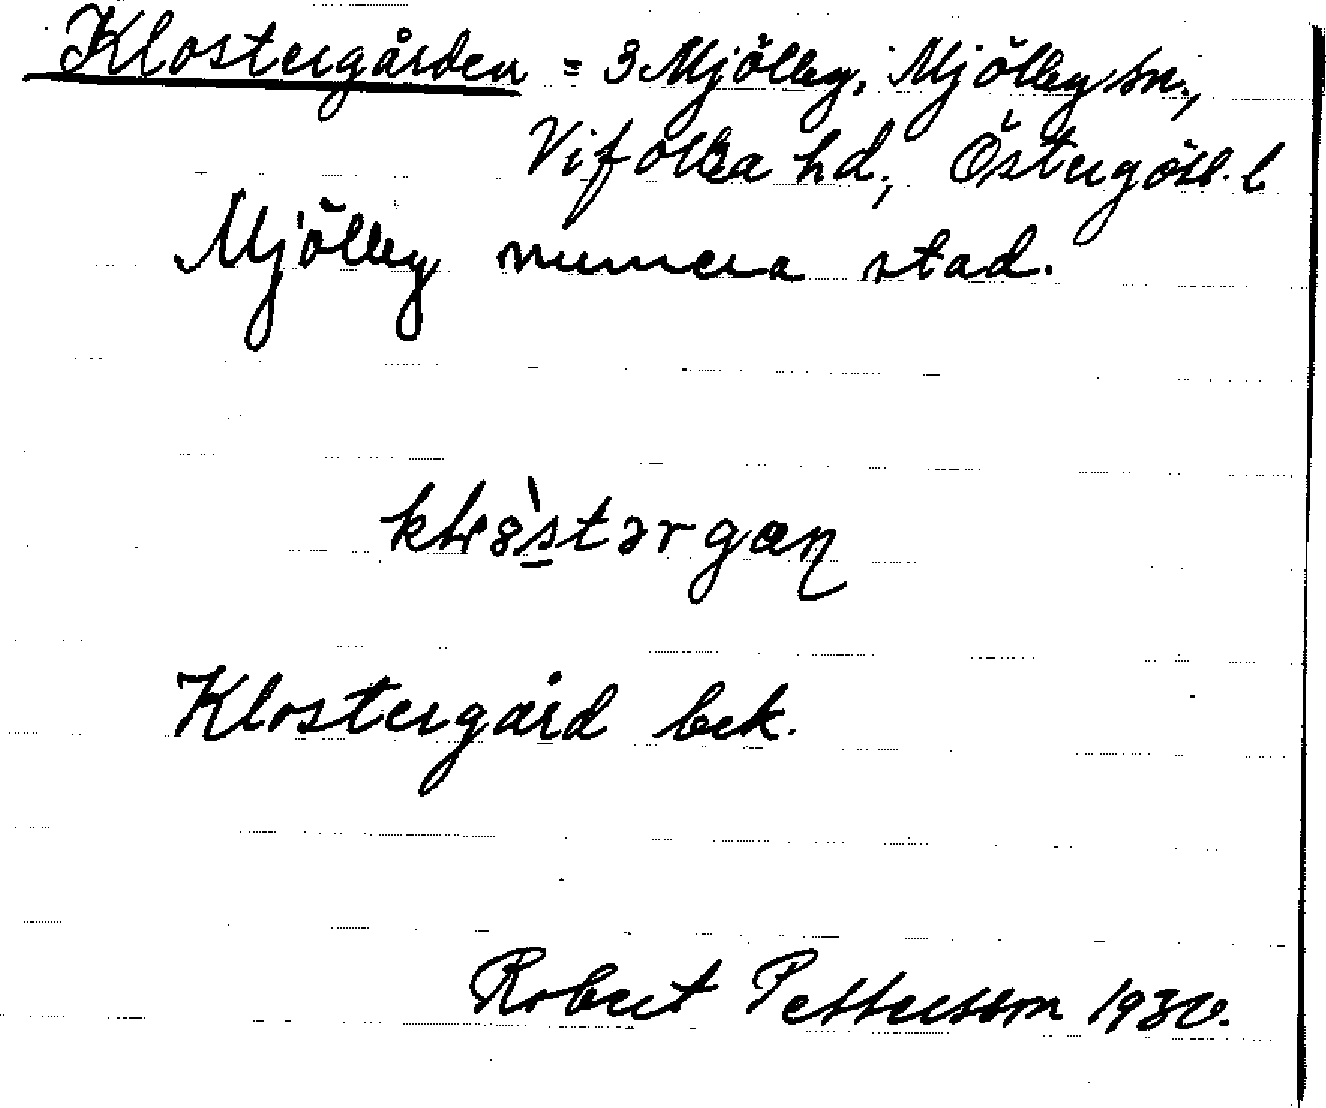 Klostergården = 3 Mjölby, Mjölby sn.,
Vifolka hd., Östergötl. l
Mjölby numera stad.
Klostergård bek.
Robert Pettersson